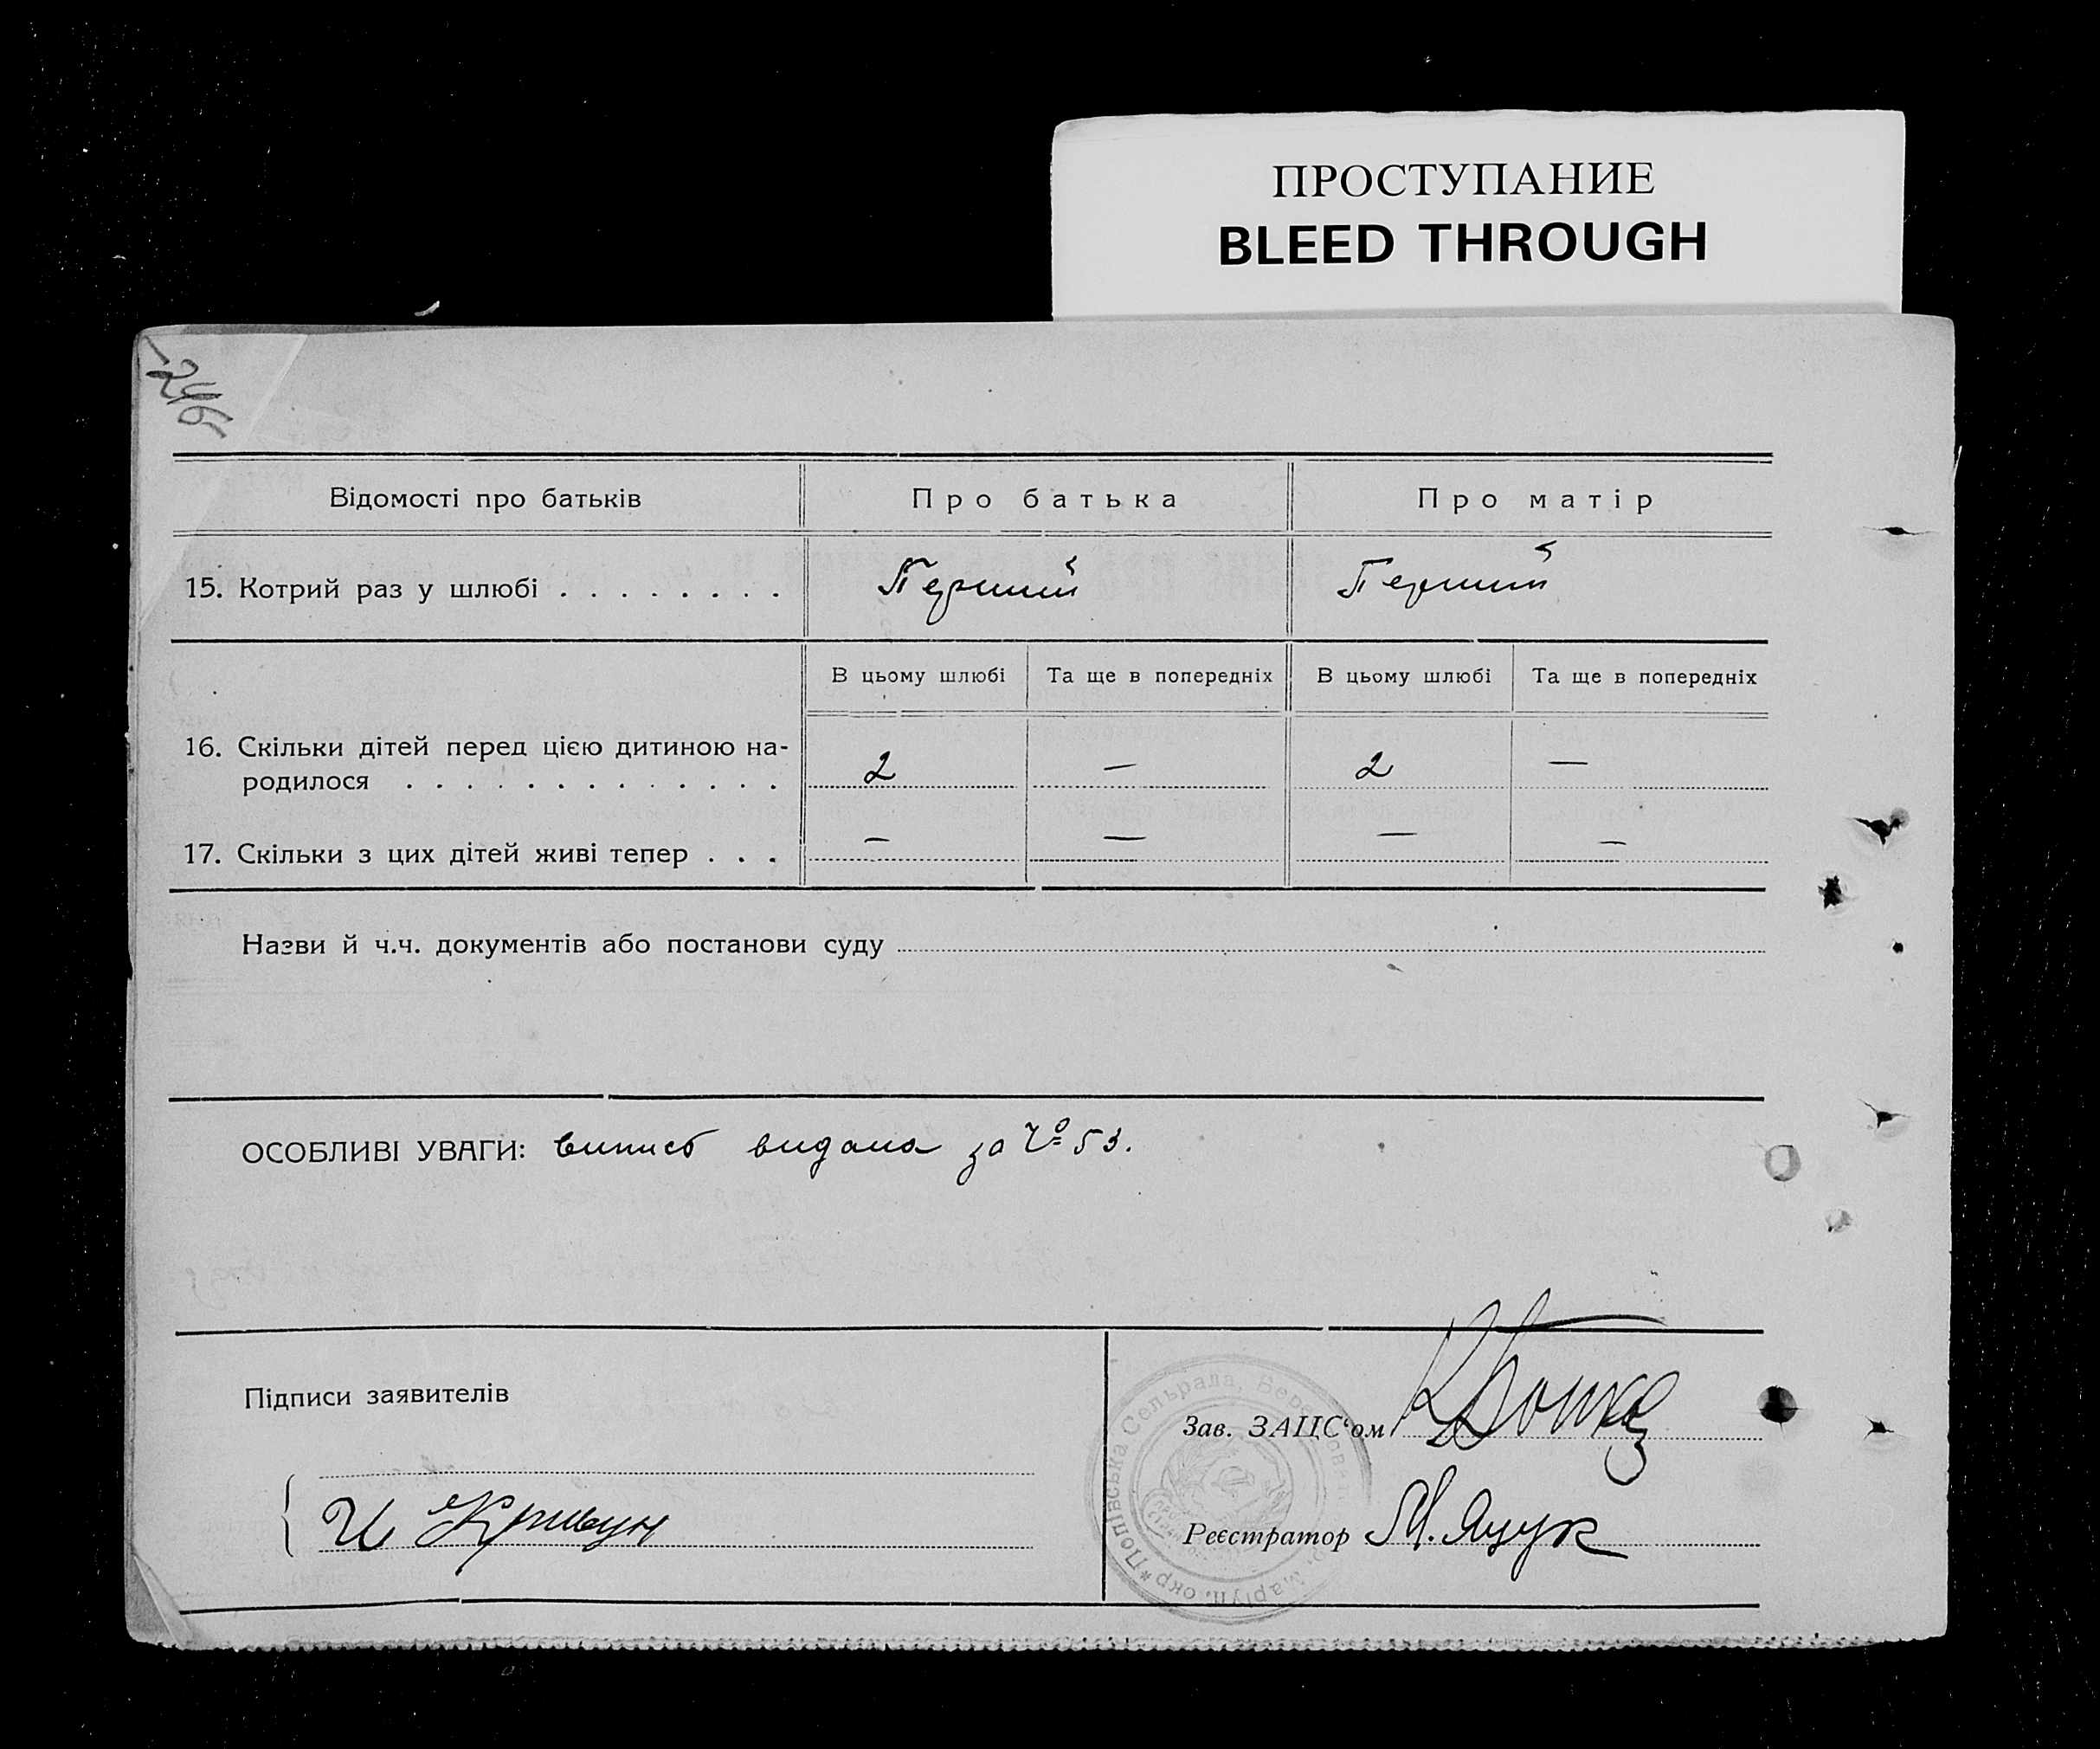 ПРОСТУПАНИЕ
BLEED THROUGH
-246
Відомості про батьків
Про батька
Про матір
15. Котрий раз у шлюбі . . . . . . . .
Перший
Перший
В цьому шлюбі
Та ще в попередніх
В цьому шлюбі
Та ще в попередніх
16. Скільки дітей перед цією дитиною на-
родилося . . . . . . . . . . . . .
2
—
2
—
17. Скільки з цих дітей живі тепер . . .
—
—
—
—
Назви й ч.ч. документів або постанови суду
ОСОБЛИВІ УВАГИ: Випись видана за № 53.
Підписи заявителів
И Кривун
Зав. ЗАЦС‘ом
Реєстратор М. Яцук
* Попівська Сельрада, Маріуп. окр